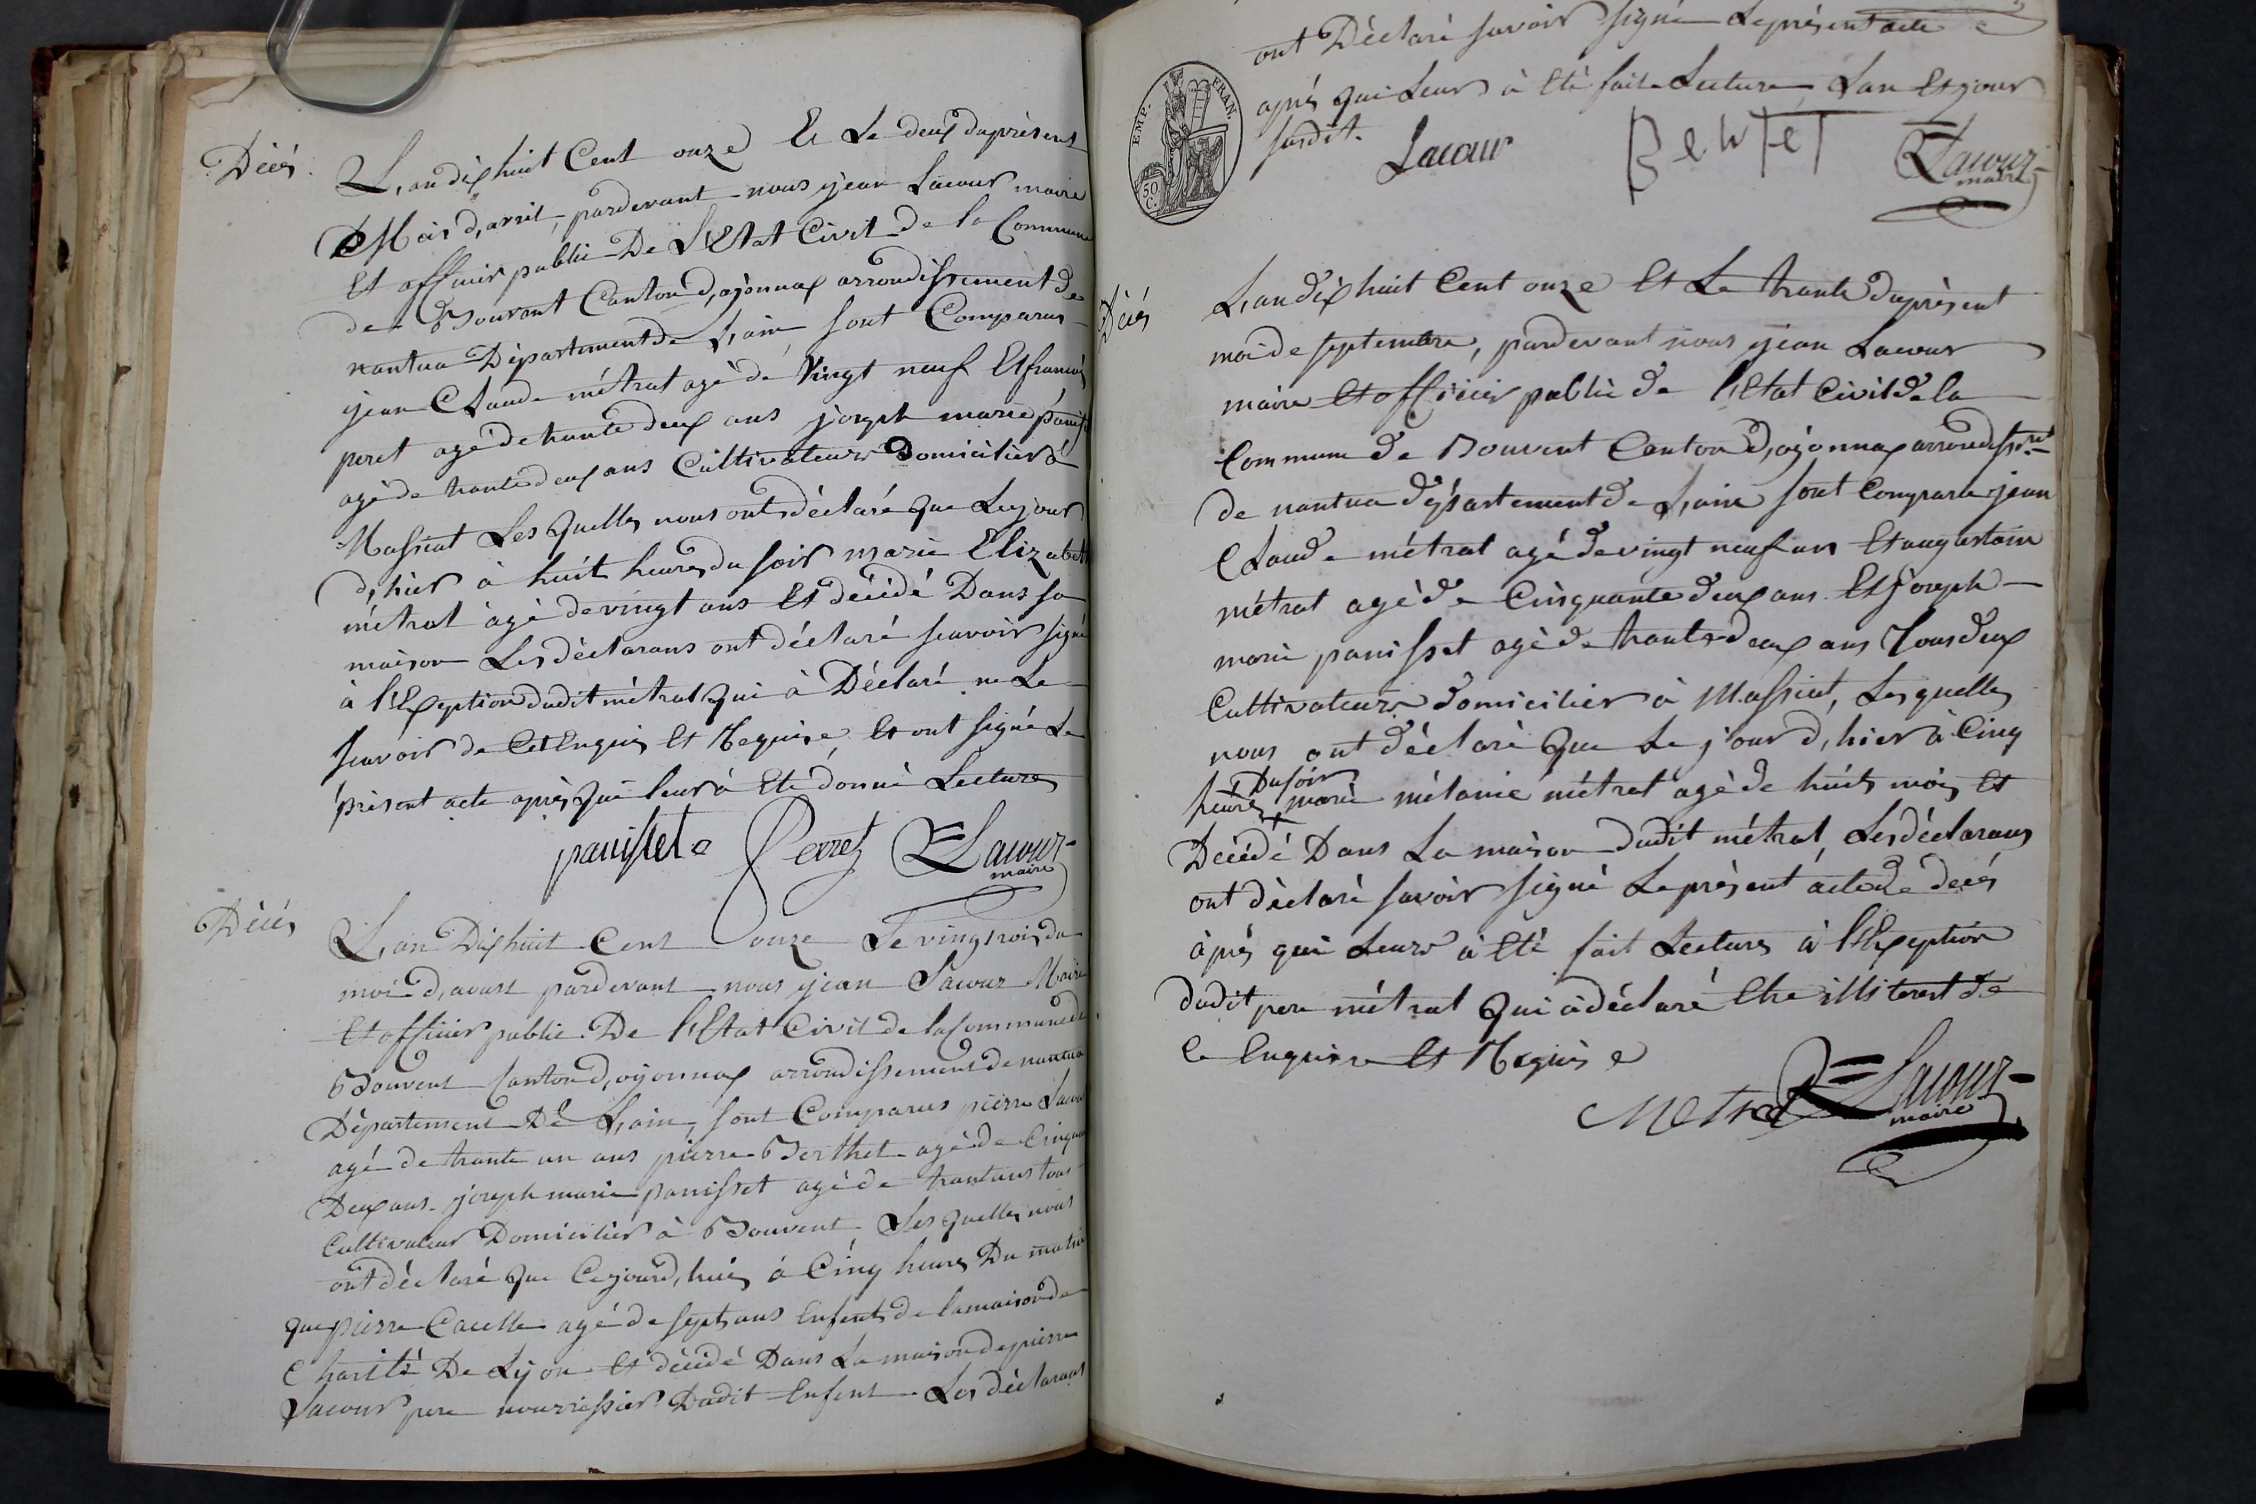 Décés
L'an dix huit Cent onze Et Le deux du présent
Mois d'avril, pardevant nous jean Lacour maire
Et officier public De L'Etat Civil de la Commune
de Bouvent Canton d'oÿonnax arrondissement de
nantua Département de L'ain, sont Comparus
jean Claude métrat agé de Vingt neuf Et francois
peret agé de trante deux ans joseph marie panisset
agé de trante deux ans Cultivateurs Domicilier à
Massiat Les quelles nous ont déclaré que Le jour
d'hier à huit heures du soir marie Elizabet
métrat agé de vingt ans Et décédé Dans sa
maison Les déclarans ont déclaré scavoir signé
à l'Exception dudit métrat qui à Déclaré ne Le
scavoir de Cet Enquis Et Requise, Et ont signé Le
présent acte après qui leur à Eté donné Lecture
panisset Perret Lacour
maire
Décés
L'an Dix huit Cent onze Le vingt rois du
moi d'avust pardevant nous jean Lacour Maire
Et officier public De l'Etat Civil de la Commune de
Bouvent Canton d'oyonnax arrondissement de nantua
Département De L'ain, sont Comparus pierre Lacour
agé de trante un ans pierre Berthet agé de Cinquante
Deux ans joseph marie panisset agé de trant ans tous
Cultivateur Domicilier à Bouvent Les quelles nous
ont déclaré que Cejourd'huis à Cinq heures Du matin
que pierre Cacelle agé de sept ans Enfent de la maison de
Charité De Lyon Et décédé Dans La maison de pierre
Lacour pere nourrissier Dudit Enfent Les déclarans
ont Déclaré savoir signé Le présent acte
EMP. FRAN.
50 C.
aprés qui Leur à Eté fait Lecture L'an Et jour
susdit.
Lacour Bertet Lacour
maire
Décés
L'an dix huit Cent onze Et Le trante du présent
moi de septembre, pardevant nous jean Lacour
maire Et officier public de l'Etat Civil de la
Commune de Bouvent Canton d'oÿonnax arrondissement
de nantua département de L'ain sont Comparu jean
Claude métrat agé de vingt neuf ans Et augustain
métrat agé de Cinquante deux ans Et joseph
marie panisset agé de trante deux ans Tous deux
Cultivateurs domicilier à Massiat, Lesquelles
nous ont déclaré que Le jour d'hier à Cinq
Du soir
heures + marie mélanie métrat agé de huit mois Et
Décédé Dans La maison dudit métrat, Les déclarans
ont déclaré savoir signé Le présent acte de decés
après qui Leurs à Eté fait Lecture à l'Exception
dudit pere métrat qui à déclaré Etre illiterest de
Ce Enquise Et Requise
Metrat Lacour
maire